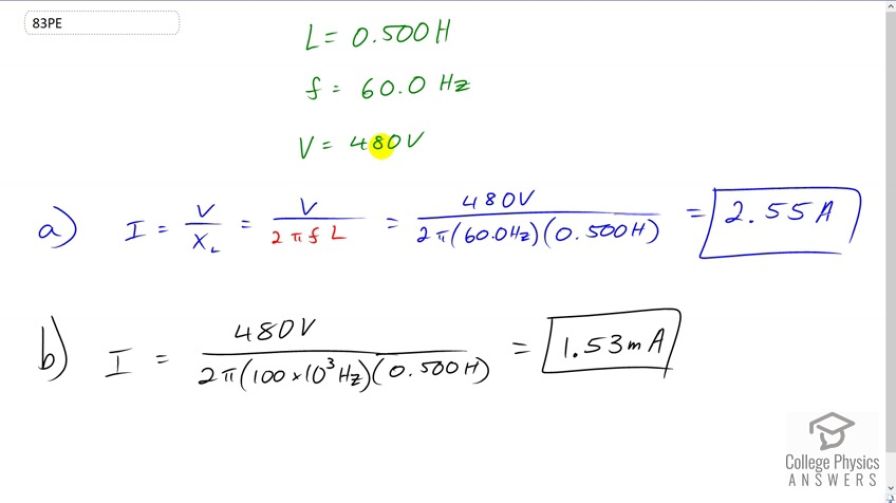 83PE
L = 0.500H
f = 60.0 Hz
V = 480V
a) I = V/X_L = V/2πfL = 480V/2π(60.0Hz)(0.500H) = 2.55A
b) I = 480V/2π(100×10³Hz)(0.500H) = 1.53mA
College Physics
ANSWERS